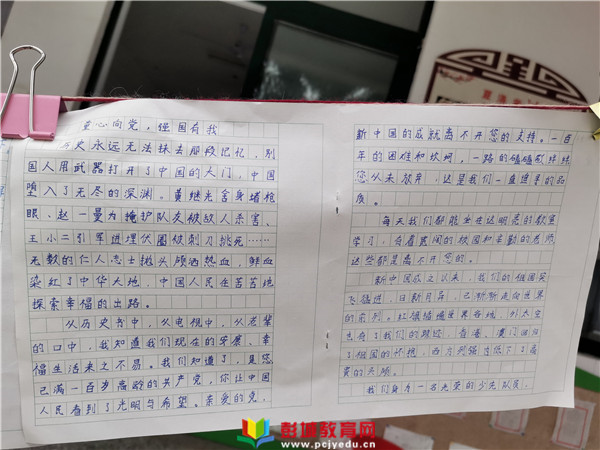 童心向党，强国有我
历史永远无法抹去那段记忆，别
国人用武器打开了中国的大门，中国
堕入了无尽的深渊。黄继光舍身堵枪
眼、赵一曼为掩护队友被敌人杀害、
王小二引军进埋伏圈被刺刀挑死……
无数的仁人志士抛头颅洒热血，鲜血
染红了中华大地，中国人民在苦苦地
探索幸福的出路。
从历史书中，从电视中，从老辈
的口中，我知道我们现在的发展、幸
福生活来之不易。我们知道了，是您
已满一百岁高龄的共产党，你让中国
人民看到了光明与希望。亲爱的党，
新中国的成就离不开您的支持。一百
年的困难和坎坷，一路的磕磕绊绊
您从未放弃，这是我们一直追寻的品
质。
每天我们都能坐在这明亮的教室
学习，有着宽阔的校园和辛勤的老师
这些都是离不开您的。
新中国成立以来，我们的祖国突
飞猛进，日新月异，已渐渐走向世界
的前列。红旗插遍世界各地，外太空
也有了我们的踪迹，香港、澳门回归
了祖国的怀抱，西方列强也低下了高
贵的头颅。
我们身为一名光荣的少先队员，
彭城教育网
www.pcjyedu.cn